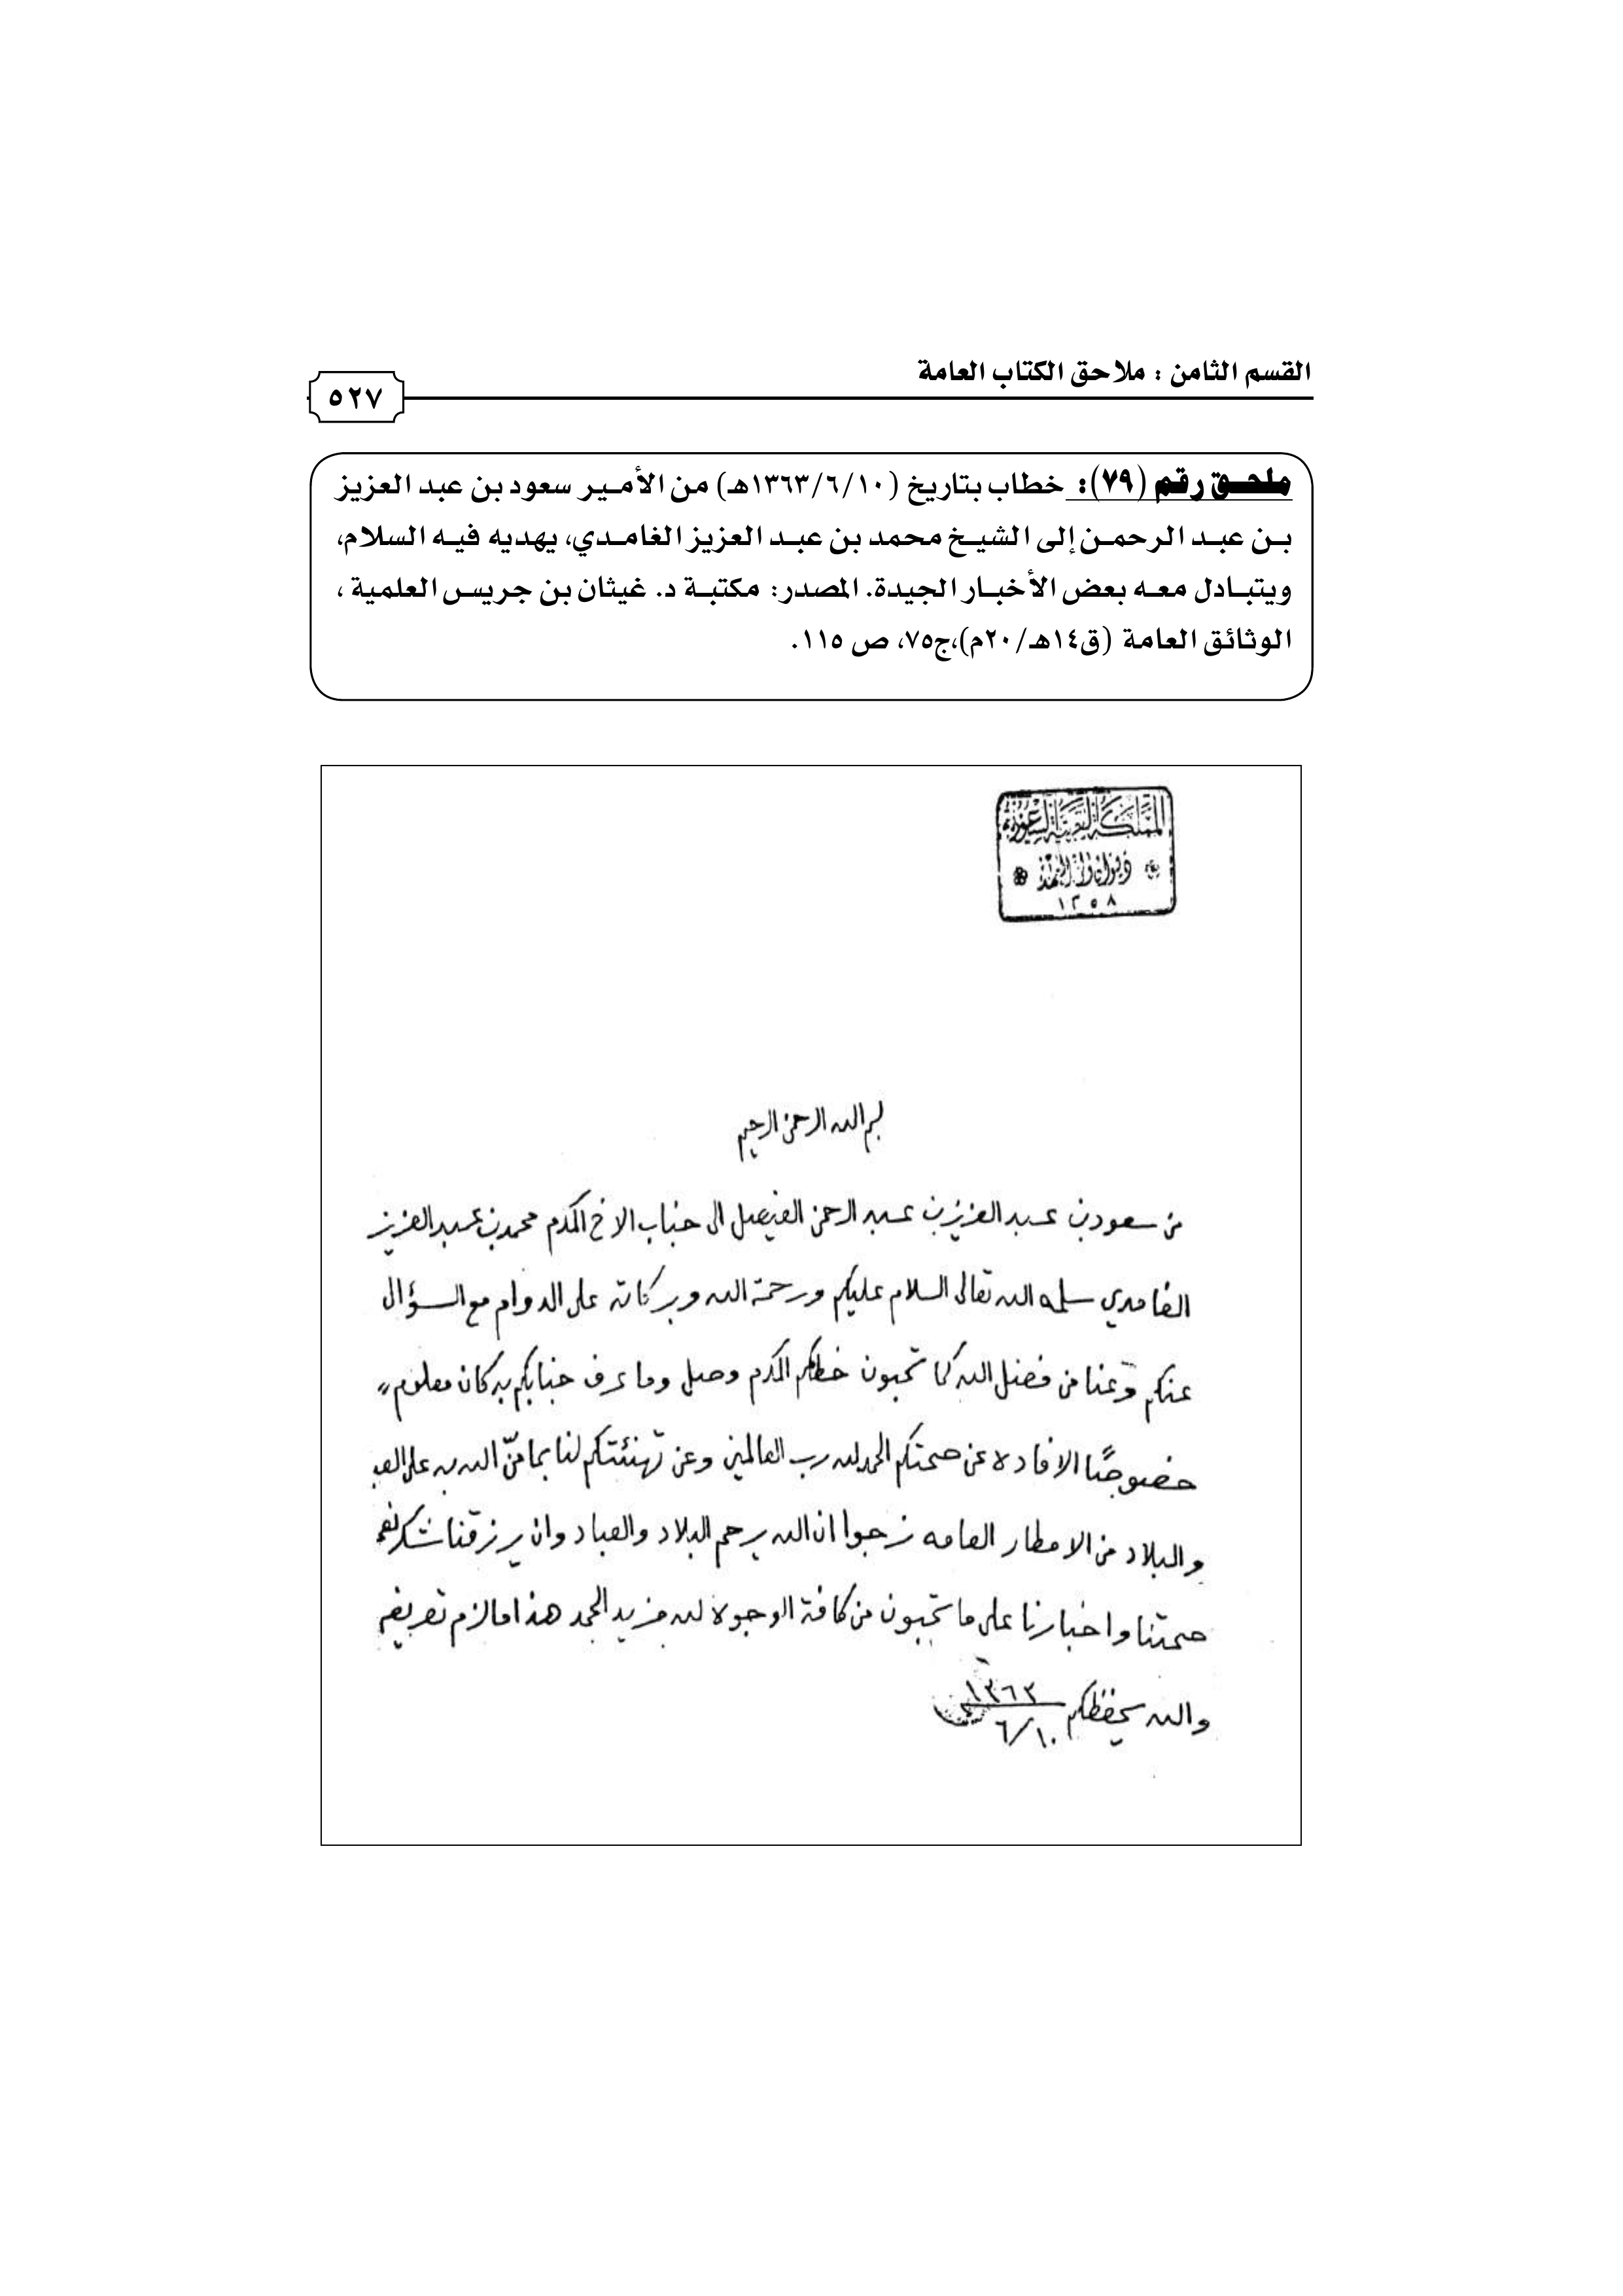 القسم الثامن : ملاحق الكتاب العامة
٥٢٧
ملحق رقم (٧٩): خطاب بتاريخ (١٣٦٣/٦/١٠هـ) من الأمير سعود بن عبد العزيز
بن عبد الرحمن إلى الشيخ محمد بن عبد العزيز الغامدي، يهديه فيه السلام،
ويتبادل معه بعض الأخبار الجيدة. المصدر: مكتبة د. غيثان بن جريس العلمية ،
الوثائق العامة (ق١٤هـ/٢٠م)،ج٧٥، ص ١١٥.
المملكة العربية السعودية
ديوان ولي العهد
١٣٥٨
بسم الله الرحمن الرحيم
من سعود بن عبد العزيز بن عبد الرحمن الفيصل الى جناب الاخ المكرم محمد بن عبد العزيز
الغامدي سلمه الله تعالى السلام عليكم ورحمة الله وبركاته على الدوام مع السؤال
عنكم وعنا من فضل الله كما تحبون خطكم المكرم وصل وما عرف جنابكم به كان معلوم
خصوصًا الافاده عن صحتكم الحمد لله رب العالمين وعن تهنئتكم لنا بما منّ الله به على
والبلاد من الامطار العامه نرجوا ان الله يرحم البلاد والعباد وان يرزقنا شكر
صحتنا واخبارنا على ما تحبون من كافة الوجوه لله مزيد الحمد هذا مالزم تعريفه
والله يحفظكم ١٣٦٣
٦/١٠